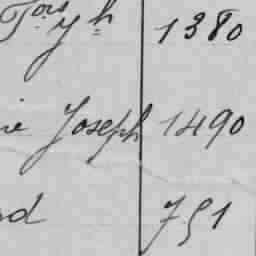 Fois Jh 1380
ie Joseph 1490
d 751